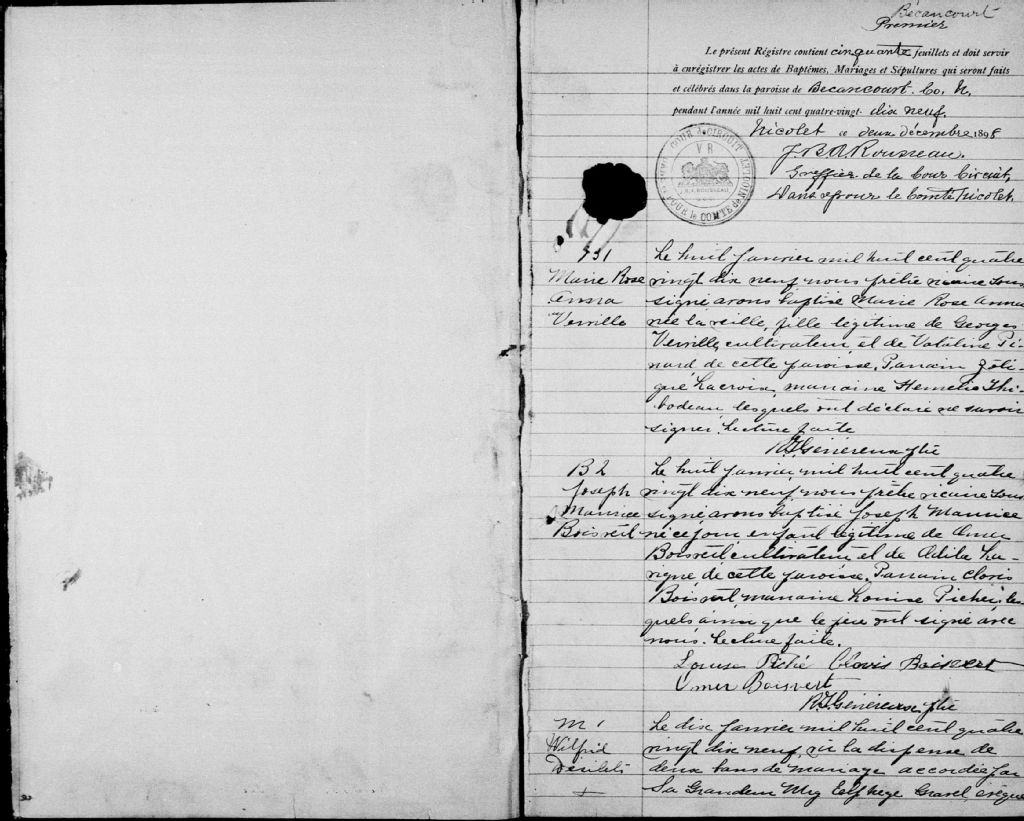 Bécancourt
Premier
Le présent Régistre contient cinquante feuillets et doit servir
à enrégistrer les actes de Baptêmes, Mariages et Sépultures qui seront faits
et célébrés dans la paroisse de Becancourt. Co. N.
pendant l'année mil huit cent quatre-vingt- dix neuf.
Nicolet ce deux décembre 1898
J. B. A. Rousseau.
Greffier de la Cour Circuit,
Dans & pour le Comté Nicolet
COUR de CIRCUIT
V R
POUR le COMTÉ de NICOLET
B1
Marie Rose
Anna
Verville
Le huit Janvier mil huit cent quatre
vingt dix neuf nous prêtre vicaire sous
signé avons baptisé Marie Rose Anna
née la veille, fille légitime de Georges
Verville, cultivateur et de Pi-
nard de cette paroisse. Parrain Zoti-
que Lacroix, marraine Thi-
bodeau, lesquels ont déclaré ne savoir
signer. Lecture faite
Généreux ptre
B2
Joseph
Maurice
Boisvert
Le huit Janvier, mil huit cent quatre
vingt dix neuf, nous prêtre vicaire sous
signé avons baptisé Joseph Maurice
né ce jour enfant légitime de Omer
Boisvert cultivateur et de La-
vigne, de cette paroisse. Parrain Clovis
Boisvert, marraine Louise Piché, les
quels ainsi que le père ont signé avec
nous. Lecture faite.
Louise Piché Clovis Boisvert
Omer Boisvert
Généreux ptre
M 1
Wilfrid
Désilets
+
Le dix Janvier mil huit cent quatre
vingt dix neuf, vu la dispense de
deux bans de mariage accordée par
Sa Grandeur Mgr Elphège Gravel, évêque